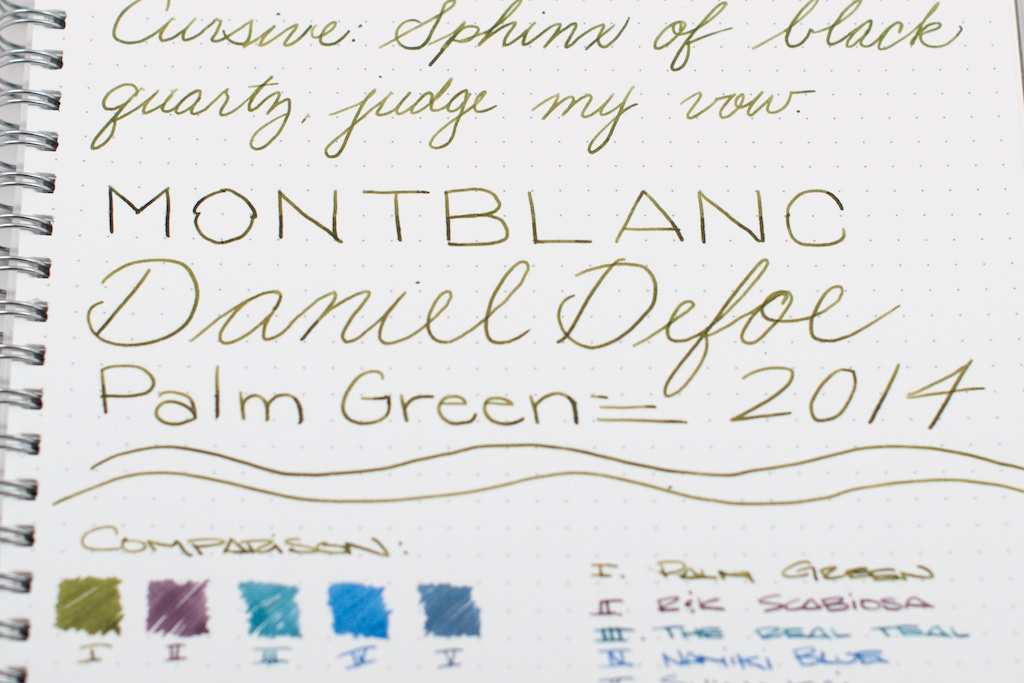 Cursive: Sphinx of black
quartz, judge my vow.
MONTBLANC
Daniel Defoe
Palm Green 2014
COMPARISON:
I II III IV V
I. PALM GREEN
II R&K SCABIOSA
III THE REAL TEAL
IV NAMIKI BLUE